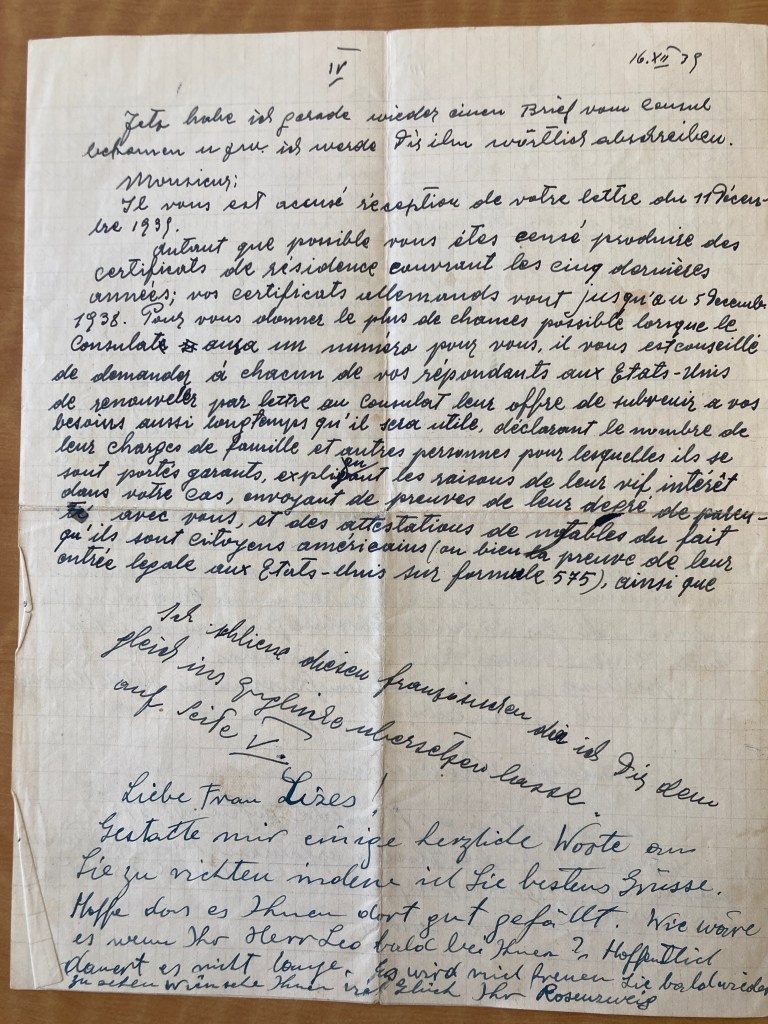 IV
16.XII 39
Jetz habe ich gerade wieder einen Brief vom Consul
bekomen u zw. ich werde Dir ihn wörtlich abschreiben.
Monsieur;
Il vous est accusé réception de votre lettre du 11 Décem-
bre 1939.
Autant que possible vous étes censé produire des
certificats de résidence couvrant les cinq dernières
années; vos certificats allemands vont jusqu'au 5 Decembre
1938. Pour vous donner le plus de chances possible lorsque le
Consulat aura un numero pour vous, il vous est conseillé
de demander á chacun de vos répondants aux Etats-Unis
de renouveler par lettre au Consulat leur offre de subvenir a vos
besoins aussi longtemps qu'il sera utile, déclarant le nombre de
leur charges de famille et autres personnes pour lesquelles ils se
sont portés garants, expliquant les raisons de leur vif intérêt
dans votre cas, envoyant de preuves de leur degré de paren-
té avec vous, et des attestations de notables du fait
qu'ils sont citoyens américains (ou bien la preuve de leur
entrée legale aux Etats-Unis sur formule 575), ainsi que
Ich schliesse diesen französischen die ich Dir dem
gleich ins Englische übersetzen lasse
auf Seite V.
Liebe Frau Lizes!
Gestatte mir einige herzliche Worte an
Sie zu richten indem ich Sie bestens Grüsse.
Hoffe das es Ihnen dort gut gefällt. Wie wäre
es wenn Ihr Herr Leo bald bei Ihnen? Hoffentlich
dauert es nicht lange. Es wird mich freuen Sie bald wieder
zu sehen wünsche Ihnen viel Glück Ihr Rosenzweig